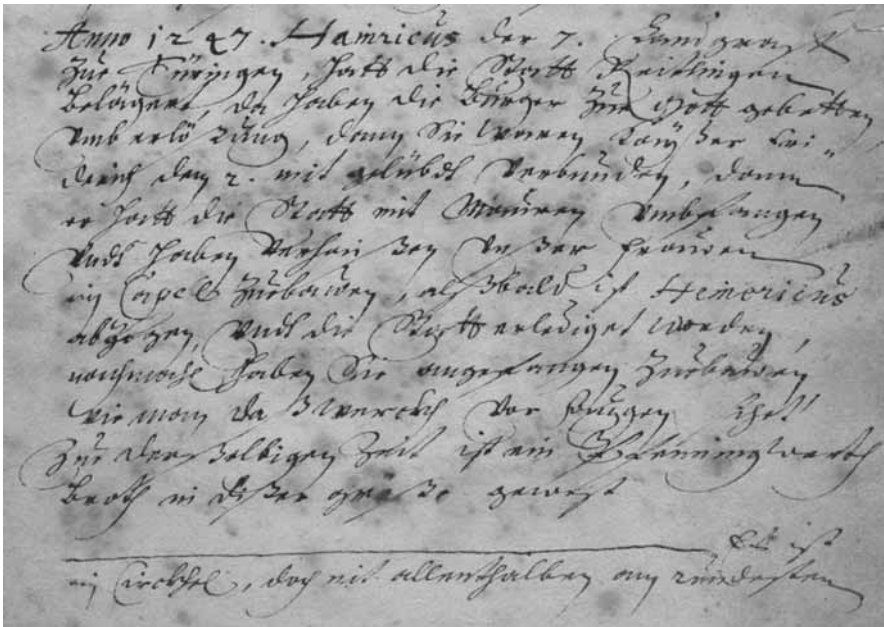 Anno 1247. Hainricus der 7. Landgraff
Zue Türingen, hatt die Statt Reitlingen
Belägert, da haben die Burger Zue Gott gebetten
Vmb erlößung, dann Sie waren Käyßer Fri=
derich dem 2. mit gelübdt verbunden, dann
er hatt die Statt mit Mauren vmbfangen
Vndt haben Verheißen Vnßer Frauwen
ein Capell Zuebauwen, alßbald ist Heinricus
abgezogen, Vndt die Statt erlediget worden,
nachmahl haben Sie angefangen Zuebauwen
wie man daß werckh vor Augen
Zue derßelbigen Zeit ist ein Pfenningwerth
Broth in dißer größe geweßt
Es ist
ein Circkhel, doch nit allenthalben am rundesten